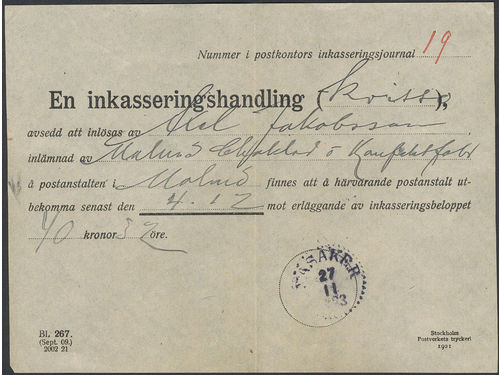 Nummer i postkontors inkasseringsjournal 19
En inkasseringshandling (kvitto),
avsedd att inlösas av Axel Jakobsson
inlämnad av Malmö Choklad & Konfektfabr
å postanstalten i Malmö finnes att å härvarande postanstalt ut-
bekomma senast den 4.12 mot erläggande av inkasseringsbeloppet
kronor öre.
27
11
Bl. 267.
(Sept. 09.)
2002 21
Stockholm
Postverkets tryckeri
1921